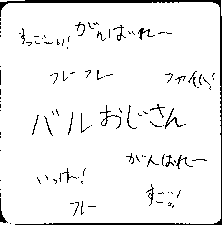 すっごーい!
がんばれー
フレー フレー
ファイト!
バルおじさん
がんばれー
いっけー!
すご。!
フレー